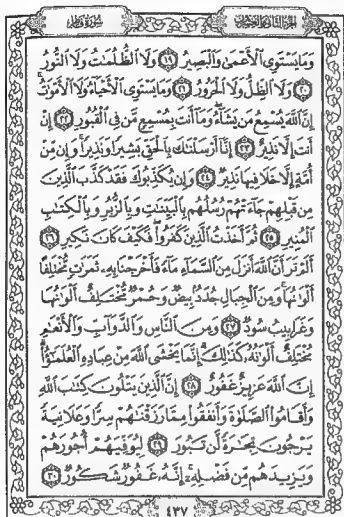 الجزء الثاني والعشرون سورة فاطر
وَمَا يَسْتَوِى الْأَعْمَىٰ وَالْبَصِيرُ ١٩ وَلَا الظُّلُمَٰتُ وَلَا النُّورُ
٢٠ وَلَا الظِّلُّ وَلَا الْحَرُورُ ٢١ وَمَا يَسْتَوِى الْأَحْيَآءُ وَلَا الْأَمْوَٰتُ
إِنَّ اللَّهَ يُسْمِعُ مَن يَشَآءُ وَمَآ أَنتَ بِمُسْمِعٍ مَّن فِى الْقُبُورِ ٢٢ إِنْ
أَنتَ إِلَّا نَذِيرٌ ٢٣ إِنَّآ أَرْسَلْنَٰكَ بِالْحَقِّ بَشِيرًا وَنَذِيرًا وَإِن مِّنْ
أُمَّةٍ إِلَّا خَلَا فِيهَا نَذِيرٌ ٢٤ وَإِن يُكَذِّبُوكَ فَقَدْ كَذَّبَ الَّذِينَ
مِن قَبْلِهِمْ جَآءَتْهُمْ رُسُلُهُم بِالْبَيِّنَٰتِ وَبِالزُّبُرِ وَبِالْكِتَٰبِ
الْمُنِيرِ ٢٥ ثُمَّ أَخَذْتُ الَّذِينَ كَفَرُوا۟ فَكَيْفَ كَانَ نَكِيرِ ٢٦
أَلَمْ تَرَ أَنَّ اللَّهَ أَنزَلَ مِنَ السَّمَآءِ مَآءً فَأَخْرَجْنَا بِهِۦ ثَمَرَٰتٍ مُّخْتَلِفًا
أَلْوَٰنُهَا وَمِنَ الْجِبَالِ جُدَدٌۢ بِيضٌ وَحُمْرٌ مُّخْتَلِفٌ أَلْوَٰنُهَا
وَغَرَابِيبُ سُودٌ ٢٧ وَمِنَ النَّاسِ وَالدَّوَآبِّ وَالْأَنْعَٰمِ
مُخْتَلِفٌ أَلْوَٰنُهُۥ كَذَٰلِكَ إِنَّمَا يَخْشَى اللَّهَ مِنْ عِبَادِهِ الْعُلَمَٰٓؤُا۟
إِنَّ اللَّهَ عَزِيزٌ غَفُورٌ ٢٨ إِنَّ الَّذِينَ يَتْلُونَ كِتَٰبَ اللَّهِ
وَأَقَامُوا۟ الصَّلَوٰةَ وَأَنفَقُوا۟ مِمَّا رَزَقْنَٰهُمْ سِرًّا وَعَلَانِيَةً
يَرْجُونَ تِجَٰرَةً لَّن تَبُورَ ٢٩ لِيُوَفِّيَهُمْ أُجُورَهُمْ
وَيَزِيدَهُم مِّن فَضْلِهِۦٓ إِنَّهُۥ غَفُورٌ شَكُورٌ ٣٠
٤٣٧